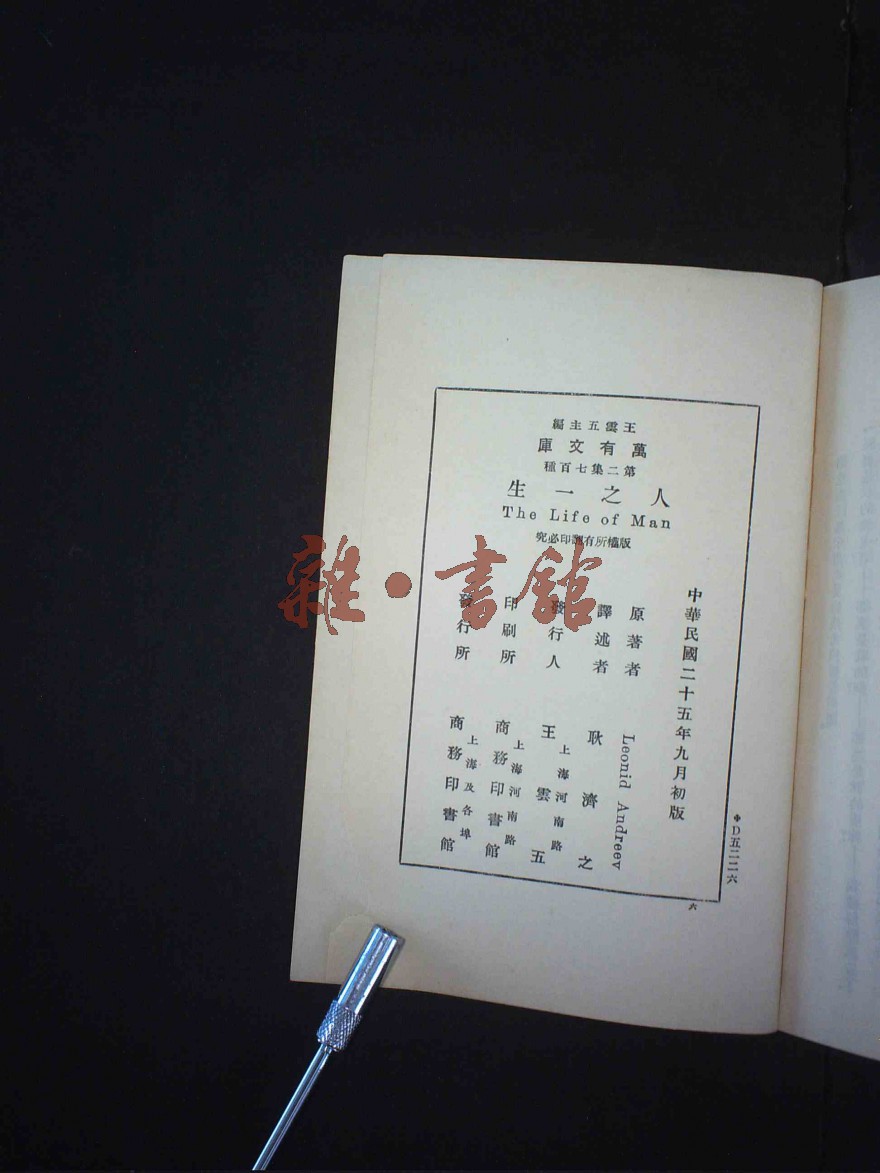 王雲五主編
萬有文庫
第二集七百種
人之一生
The Life of Man
版權所有翻印必究
中華民國二十五年九月初版
原著者 Leonid Andreev
譯述者 耿濟之
發行人 王雲五
上海河南路
印刷所 商務印書館
上海河南路
發行所 商務印書館
上海及各埠
❖D五二二六
六
雜·書館